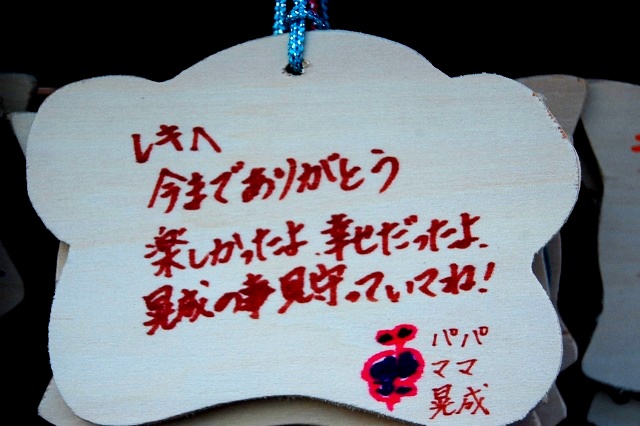 レキへ
今までありがとう
楽しかったよ、幸せだったよ、
晃成の事見守っていてね!
パパ
ママ
晃成